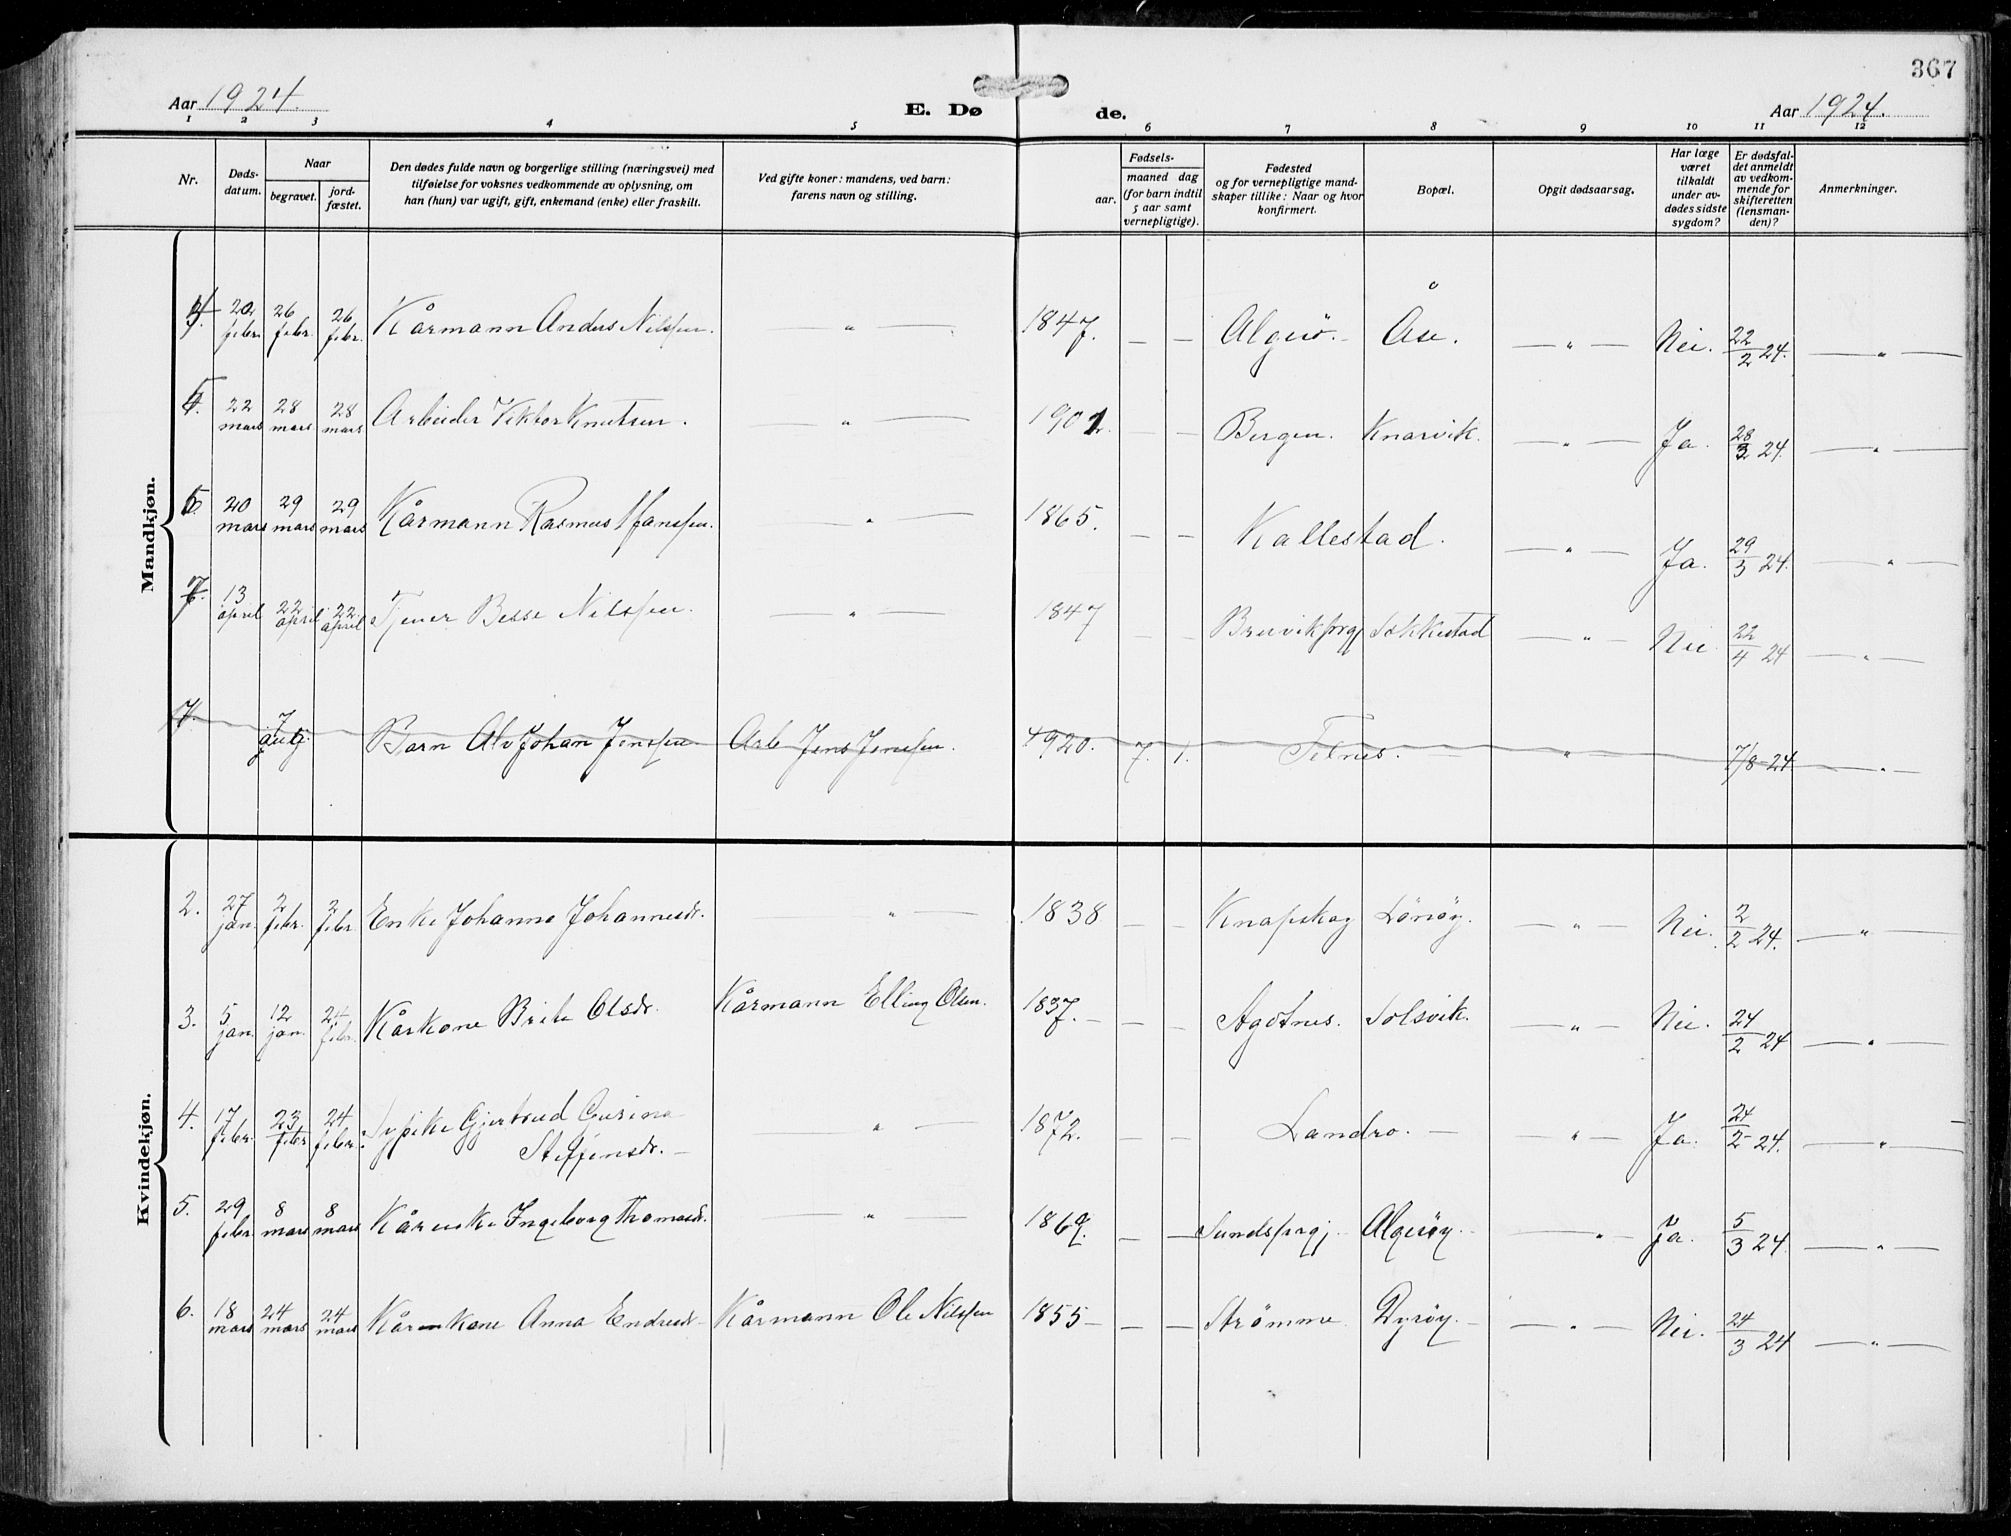 367
Aar 1924.
E. Dø
de.
Aar 1924.
1 2 3 4 5 6 7 8 9 10 11 12
Nr.
Døds-
datum.
Naar
begravet.
jord-
fæstet.
Den dødes fulde navn og borgerlige stilling (næringsvei) med
tilføielse for voksnes vedkommende av oplysning, om
han (hun) var ugift, gift, enkemand (enke) eller fraskilt.
Ved gifte koner: mandens, ved barn:
farens navn og stilling.
Fødsels-
aar.
maaned dag
(for barn indtil
5 aar samt
vernepligtige).
Fødested
og for vernepligtige mand-
skaper tillike: Naar og hvor
konfirmert.
Bopæl.
Opgit dødsaarsag.
Har læge
været
tilkaldt
under av-
dødes sidste
sygdom?
Er dødsfal-
det anmeldt
av vedkom-
mende for
skifteretten
(lensman-
den)?
Anmerkninger.
Mandkjøn.
4. 20 febr. 26 febr. 26 febr. Kårmann Anders Nilssen. — " — 1847. — — Algerö. Åse. — " — Nei. 22/2 24. — " —
5. 22 mars 28 mars 28 mars Arbeider Viktor Knutsen. — " — 1901. — — Bergen. Knarvik. — " — Ja. 28/3 24. — " —
6. 20 mars 29 mars 29 mars Kårmann Rasmus Hanssen. — " — 1865. — — Kallestad. — " — Ja. 29/3 24. — " —
7. 13 april 22 april 22 april Tjener Besse Nilssen. — " — 1847 — — Brevik Sekkestad — " — Nei 22/4 24 — " —
7. 7 Barn Alv Johan Jenssen Arb. Jens Jenssen. 1920. 7. 1. Telnes. — " 7/8-24 — " —
Kvindekjøn.
2. 27 jan. 2 febr. 2 febr. Enke Johanna Johannesdr. — " — 1838 — — Knapskog Lönöy. — " — Nei. 2/2 24. — " —
3. 5 jan. 12 jan. 24 febr. Kårkone Brita Olsdr. Kårmann Elling Olsen. 1837. — — Agotnes. Solsvik. — " — Nei. 24/2 24 — " —
4. 17 febr. 23 febr 24 febr. Gjertrud Gurina — " — 1872. — — Landro. — " — Ja. 24/2 24. — " —
Steffensdr.
5. 29 febr. 8 mars 8 mars Kårenke Ingeborg Thomasdr. — " — 1869. — — Algeröy. — " — Ja. 5/3 24. — " —
6. 18 mars 24 mars 24 mars Kårkone Anna Endresdr. Kårmann Ole Nilssen 1855 — — Strömme Dyröy. — " — Nei. 24/3 24 — " —